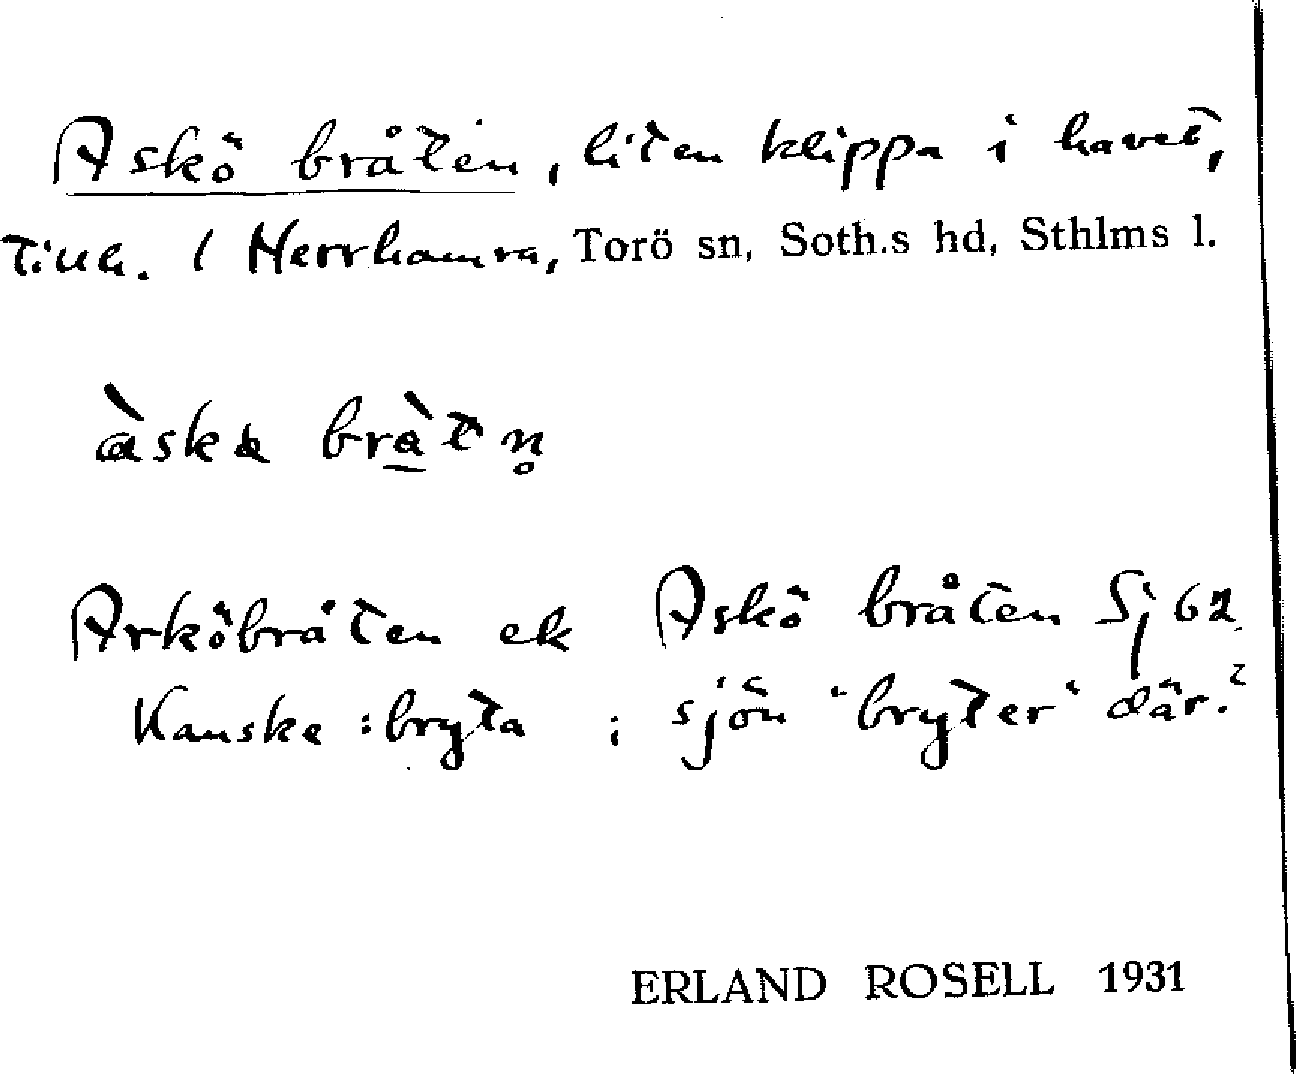 Askö bråten, liten klippa i havet,
Tillh. 1 Herrhamra, Torö sn, Soth.s hd, Sthlms l.
àska bràtn̥
Arköbråten ek Askö bråten Sj 62
Kanske : bryta ; sjön "bryter" där.?
ERLAND ROSELL 1931